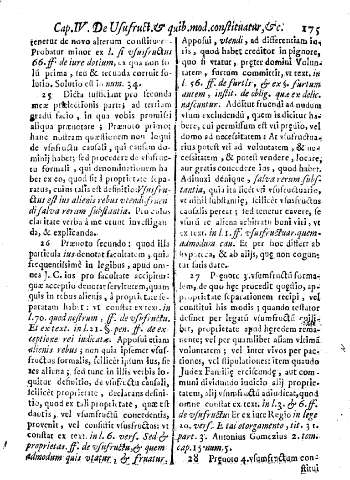 Cap. IV. De Usufruct. & quib. mod. constituatur, &c. 175
tenetur de novo alterum constituere
Probatur minor ex l. si usufructus
66. ff. de jure dotium, ex qua non so
lū prima, sed & secunda corruit so-
lutio. Solutio est in num. 34.
25 Dicta dicturus pro secunda
meæ prælectionis parte; ad tertiam
gradū facio, in qua vobis promisi
aliqua prænotare; Prænoto primo:
hanc nostram quæstionem non loqui
de usufructu causali, qui causam do
mini habet; sed procedere de usufru-
ctu formali, qui denominationem ha
bet ex eo, quod sit à proprietate se pa
ratus, cuius talis est definitio: Ususfru-
ctus est ius alienis rebus utendi fruen
di salva rerum substantia. Pro cuius
claritate verba à me veniunt investigan
da, & explicanda.
26 Prænoto secundo: quod illa
particula ius denotat facultatem, qui
frequentissimè in legibus, apud om-
nes J. C. ius pro facultate accipitur:
quæ acceptio denotat servitutem, quam
quis in rebus alienis, à proprietate se-
paratam habet: ut constat ex text. in
l. 70. quod nostrum, ff. de usufructu.
Et ex text. in l. 21. §. pen. ff. de ex
ceptione rei iudicatæ. Apponitur etiam
alienis rebus; non quia ipsemet usufru
ctus formalis, scilicet ipsum ius, sit
res aliena; sed tunc in illis verbis lo-
quitur definitio, de usufructu causali,
scilicet proprietate, declarans defini-
tio, quod ex tali, vel tali proprietate,
quæ aliena est, vel usufructū concedentis,
provenit, vel consistit ususfructus: ut
constat ex text. in l. 6. vers. Sed &
proprietas. ff. de usufructu, & quem
admodum quis utatur, & fruatur,
Apponitur, utendi, ad differentiam iu-
ris, quod habet creditor in pignore,
quo si utatur, præter domini Volun-
tatem, furtum committit, ut text. in
l. 56. ff. de furtis, & ex §. furtum
autem, instit. de oblig. quæ ex delic.
nascuntur. Additur fruendi ad nudum
usum excludendū, quem is dicitur ha-
bere, cui permissum est uti præcio, vel
domo ad necessitatem: At ususfructua-
rius potest uti ad voluntatem, & ne-
cessitatem, & potest vendere, locare,
aut gratis concedere ius, quod habet.
Adiunxi denique, salva rerum subs-
tantia, quia ità licèt uti usufructua-
rio, salva substantia, alias ususfructus
causalis periret; sed tenetur cavere, se
usurū re aliena arbitratu boni viri, ut
ex text. in l. 1. ff. ususfructuar. quem-
admodum cau. Et per hoc differt ab
hypoteca, & ab alijs, quæ non cogun
tur satis dare.
27 Prænoto 3. usumfructū forma-
lem, de quo hic procedit quæstio, ap-
proprietate separationem recipi, vel
constitui his modis; quando testator
definit per legatū usumfructū consti-
bit, proprietate apud hæredem rema-
nente; vel per quamlibet aliam ultimā
voluntatem; vel inter vivos per pac-
tiones, vel stipulationes: item quando
Judex Familiæ erciscundæ, aut com
muni dividundo iudicio alij proprie-
tatem, alij usumfructum adiudicat, ut
omnibus constat ex text. in l. 3. & 6. ff.
de usufructu. Et ex iure Regio in lege
20. vers. E tal otorgamiento, tit. 31.
part. 3. Antonius Gomezius 2. tom.
cap. 15. num. 5.
28 Prænoto 4. usumfructum con-
stitui